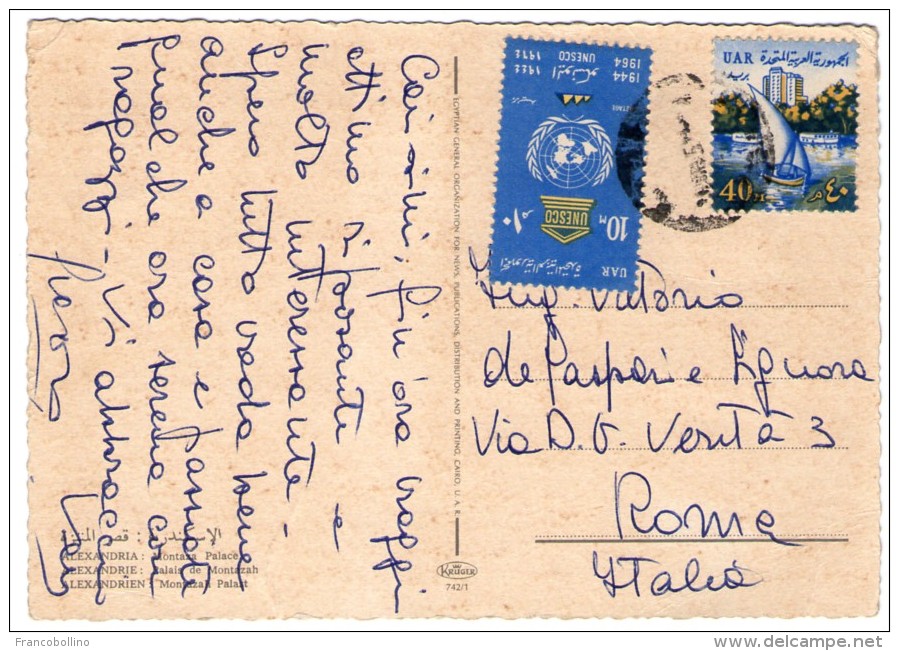 Cari
, fin'ora viaggi
ottimo interessante e
molto interessante -
Spero tutto vada bene
anche a casa e
qualche ora serena con
ragazzi - Vi abbraccia
الإسكندرية : قصر المنتزة
ALEXANDRIA : Montaza Palace
ALEXANDRIE : Palais de Montazah
ALEXANDRIEN : Montazah Palast
EGYPTIAN GENERAL ORGANIZATION FOR NEWS, PUBLICATIONS, DISTRIBUTION AND PRINTING, CAIRO, U. A. R.
KRUGER
742/1
1944 ١٩٤٤
1964 ١٩٦٤
UNESCO اليونسكو
UNESCO
10 M ١٠ م
UAR الجمهورية العربية المتحدة
UAR الجمهورية العربية المتحدة
بريد
40 M ٤٠ م
Ing. Vittorio
de Gasperi e Signora
Via D. V. Verità 3
Roma
Italia
Francobollino
www.delcampe.net